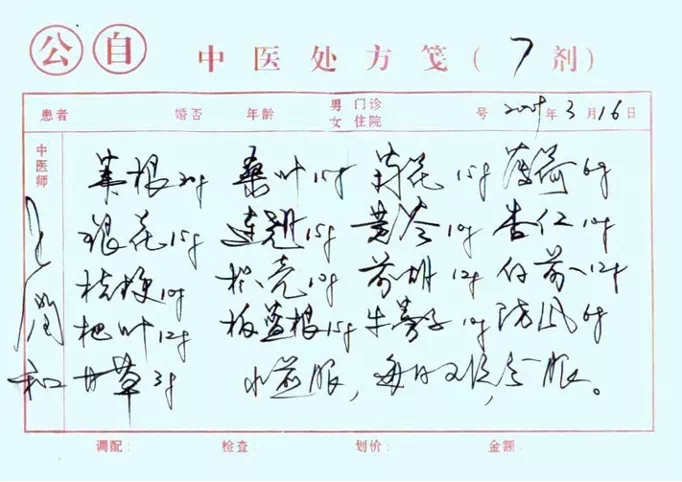 公 自 中医处方笺（7剂）
患者 婚否 年龄 男 门诊 号 年3月16日
女 住院
中医师
苇根 桑叶15g 菊花15g 薄荷6g
银花15g 连翘15g 黄芩10g 杏仁10g
桔梗10g 枳壳10g 前胡12g 白前12g
杷叶12g 板蓝根15g 牛蒡子10g 防风6g
甘草3g 水煎服，每日 分服。
调配： 检查： 划价： 金额：